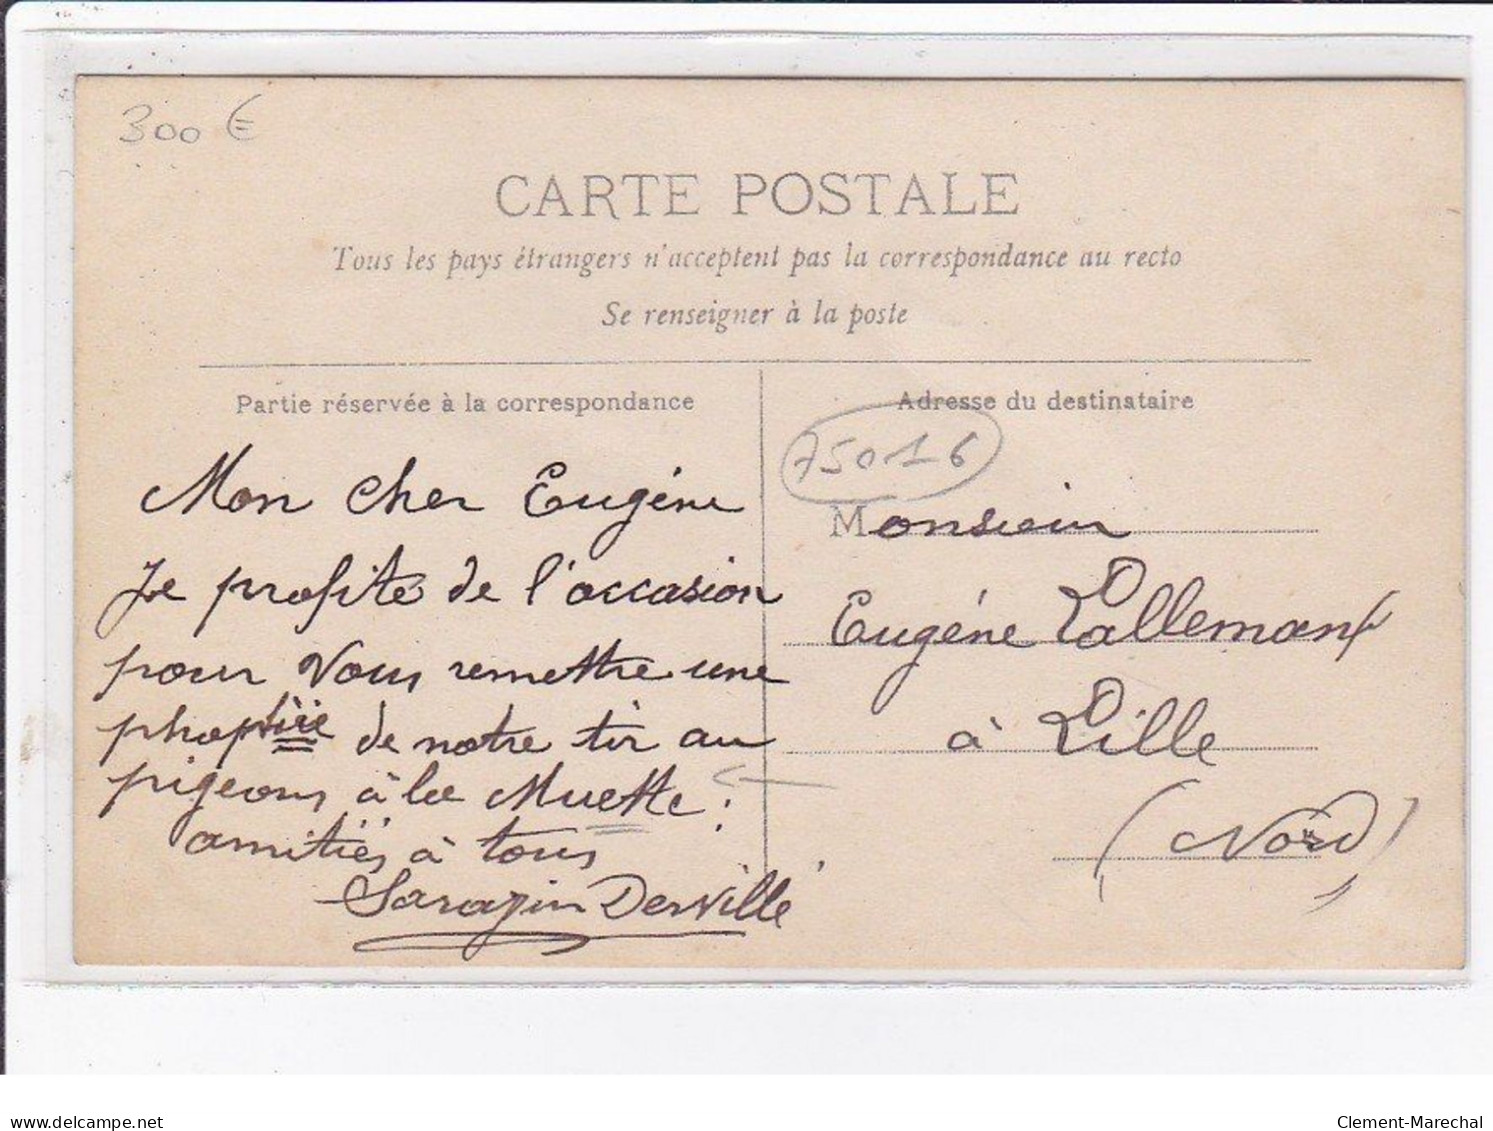 300 €
CARTE POSTALE
Tous les pays étrangers n'acceptent pas la correspondance au recto
Se renseigner à la poste
Partie réservée à la correspondance
Adresse du destinataire
75016
Mon cher Eugéne
Je profite de l'occasion
pour vous remettre une
photie de notre tir au
pigeons à la Muette :
amitiés à tous
Sarazin Derville
Monsieur
Eugéne Lallemant
à Lille
(Nord)
delcampe.net
Clement-Marechal